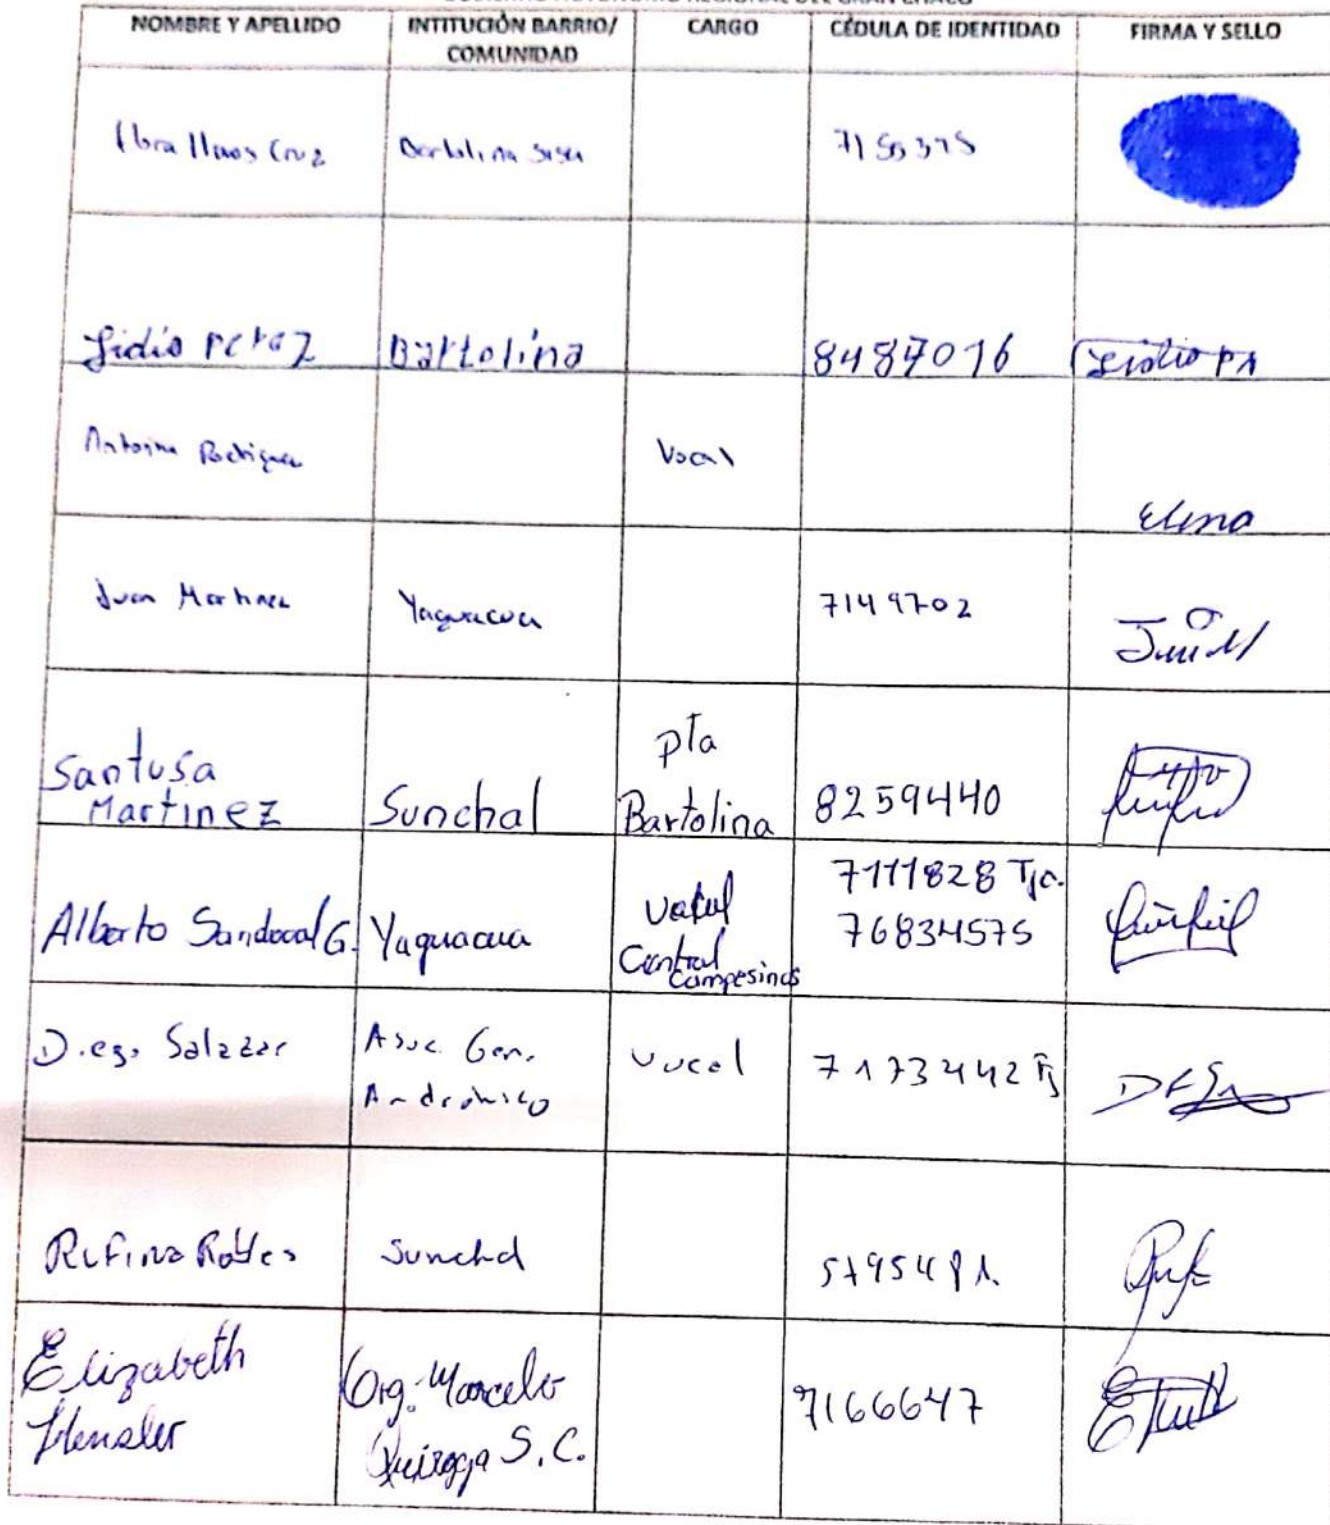 NOMBRE Y APELLIDO INTITUCIÓN BARRIO/ COMUNIDAD CARGO CÉDULA DE IDENTIDAD FIRMA Y SELLO
Cruz Bartolina Sisa 7155375
Lidio Perez Bartolina 8487016 Lidio PA
Antonina Rodriguez Vocal Elena
Juan Martinez Yaguacua 7149702
Santusa Martinez Sunchal pta Bartolina 8259440
Alberto Sandoval G. Yaguacua Vocal Central Campesinos 7111828 Tja. 76834575
Diego Salazar Asoc. Gen. Andrónico vocal 7173442 Tj
Rufina Robles Sunchal
Elizabeth Hensler Org. Marcelo Quiroga S.C. 7166647